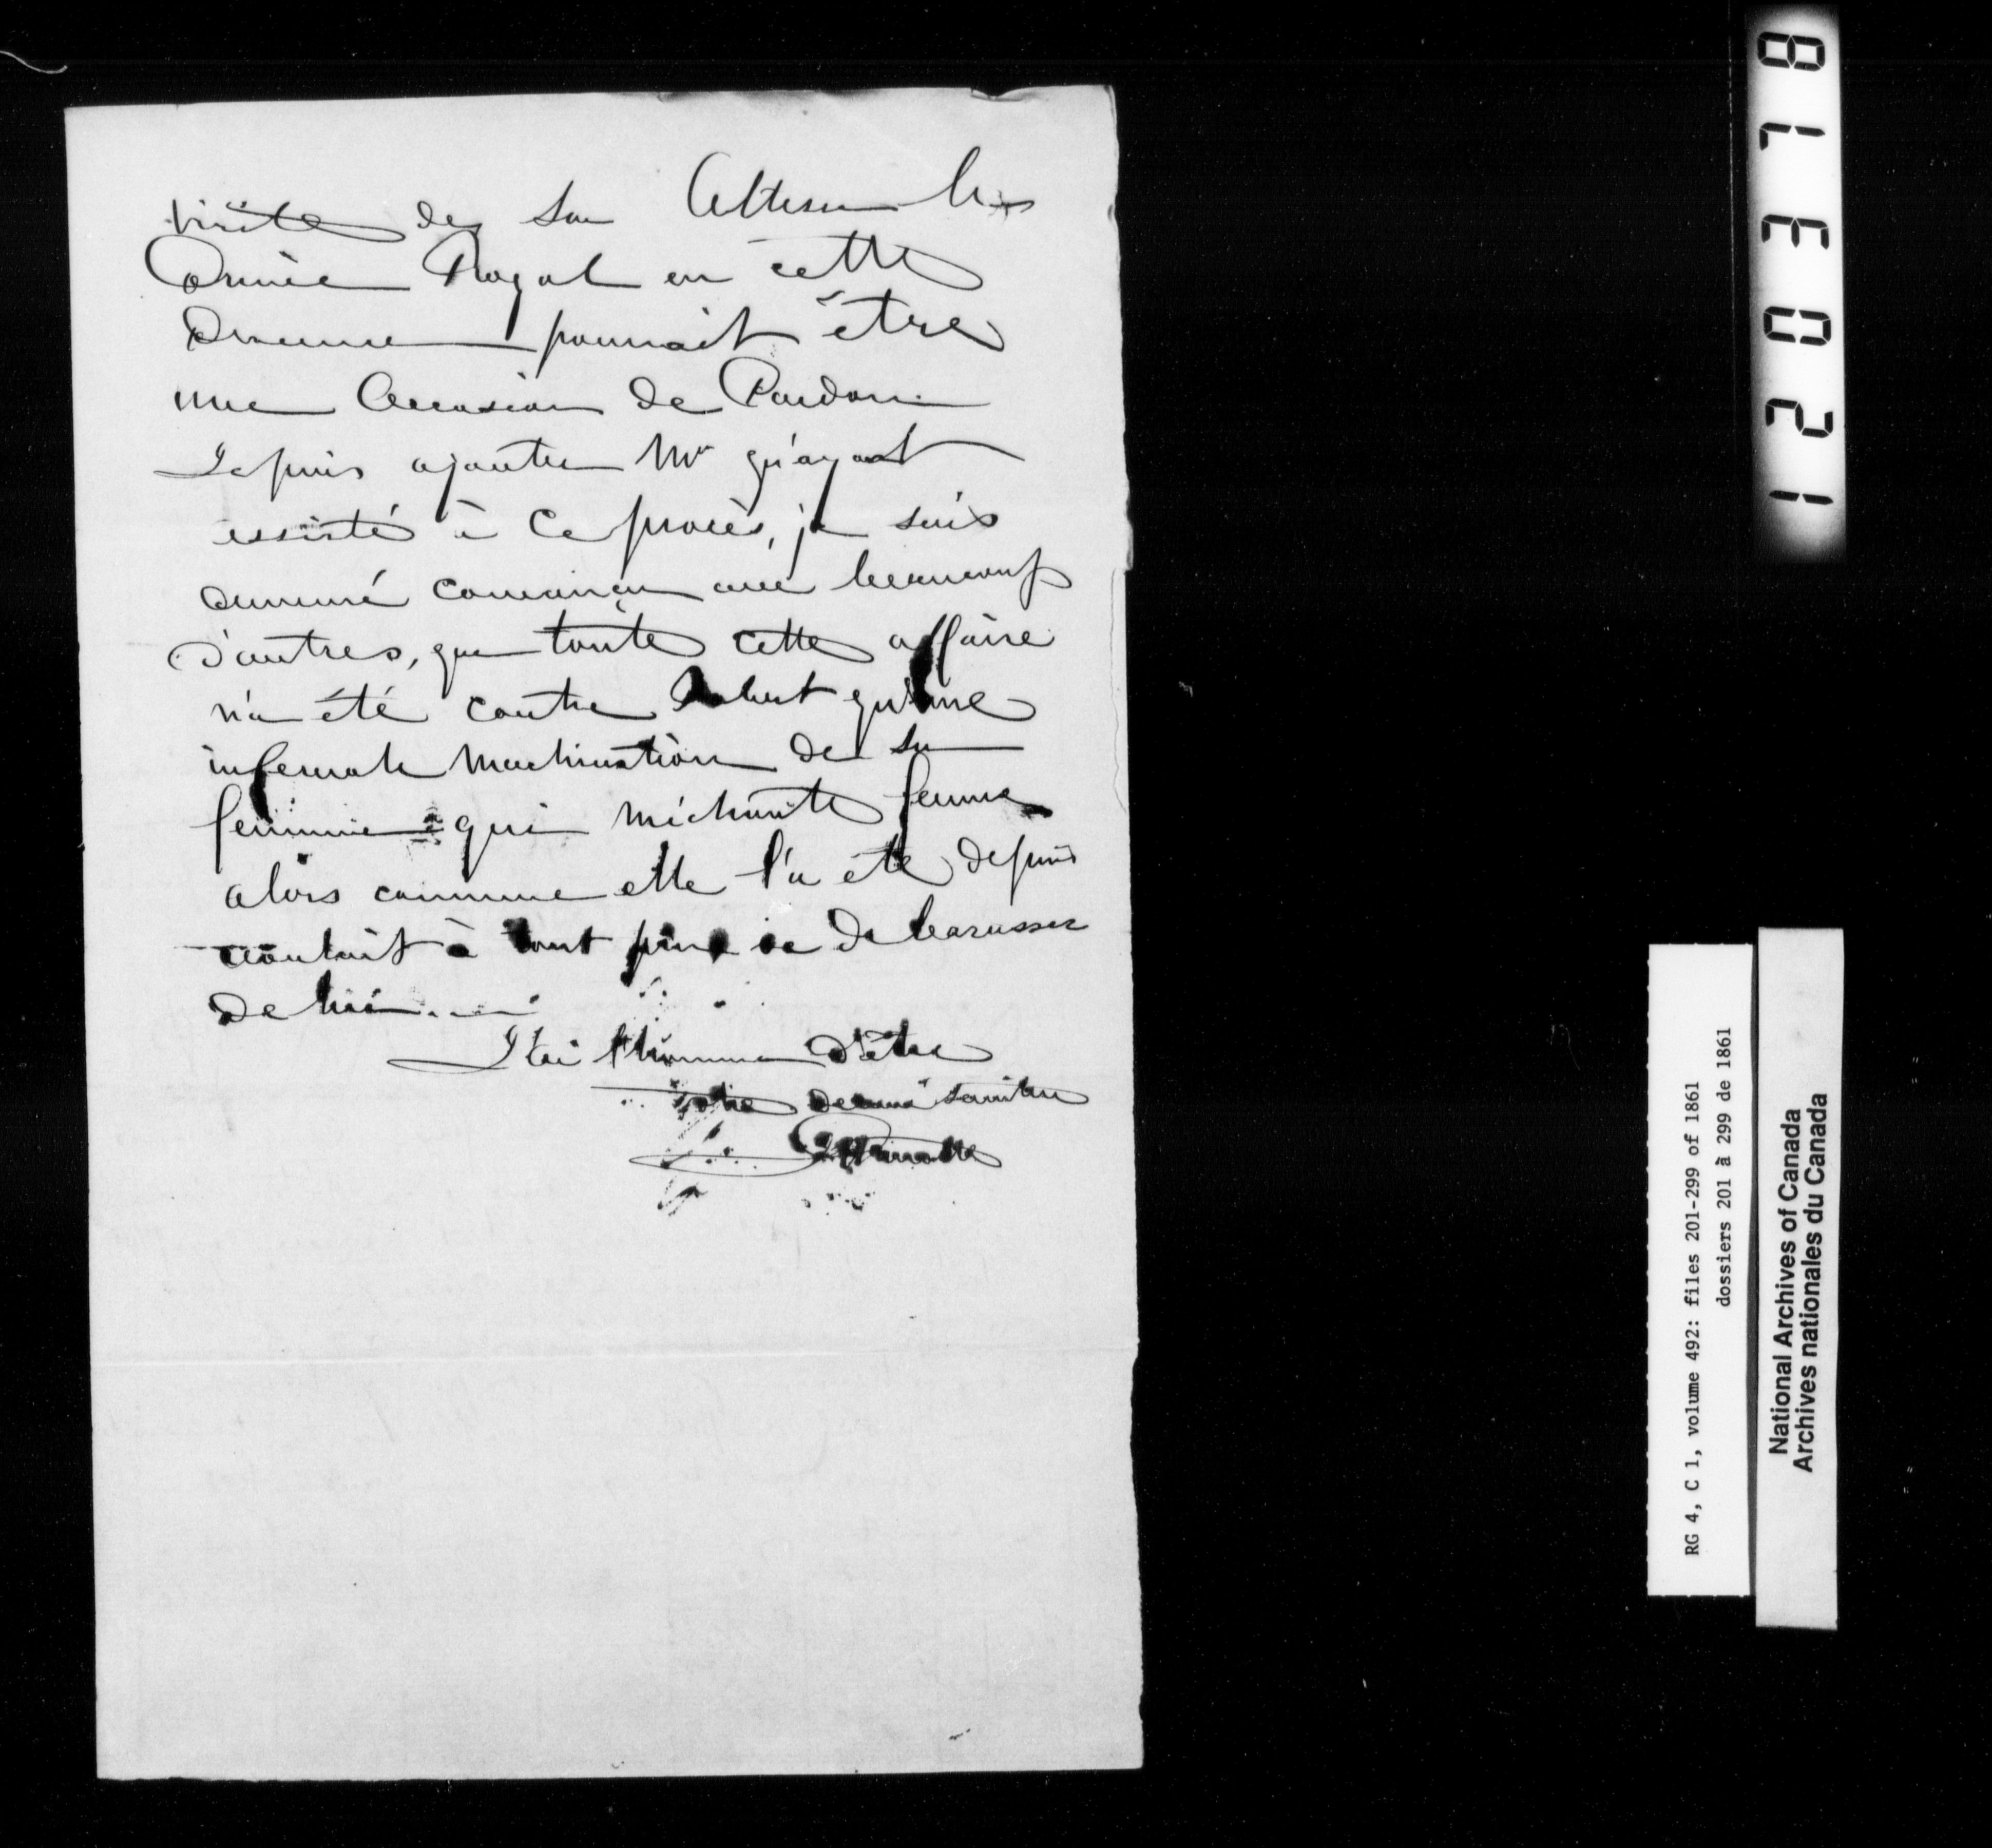 visite de Son Altesse le
Prince Royal en cette
Province pourrait être
une Occasion de Pardon
Je puis ajouter Mr qu'ayant
assisté à ce procès, je suis
demeuré convaincu avec beaucoup
d'autres, que toute cette affaire
n'a été contre qu'une
infernale machination de sa
femme qui méchante femme
alors comme elle l'a été depuis
voulait à tout prix se debarasser
de lui.
J'ai l'honneur d'être
Votre devoué Serviteur
87E021
RG 4, C 1, volume 492: files 201-299 of 1861
dossiers 201 à 299 de 1861
National Archives of Canada
Archives nationales du Canada